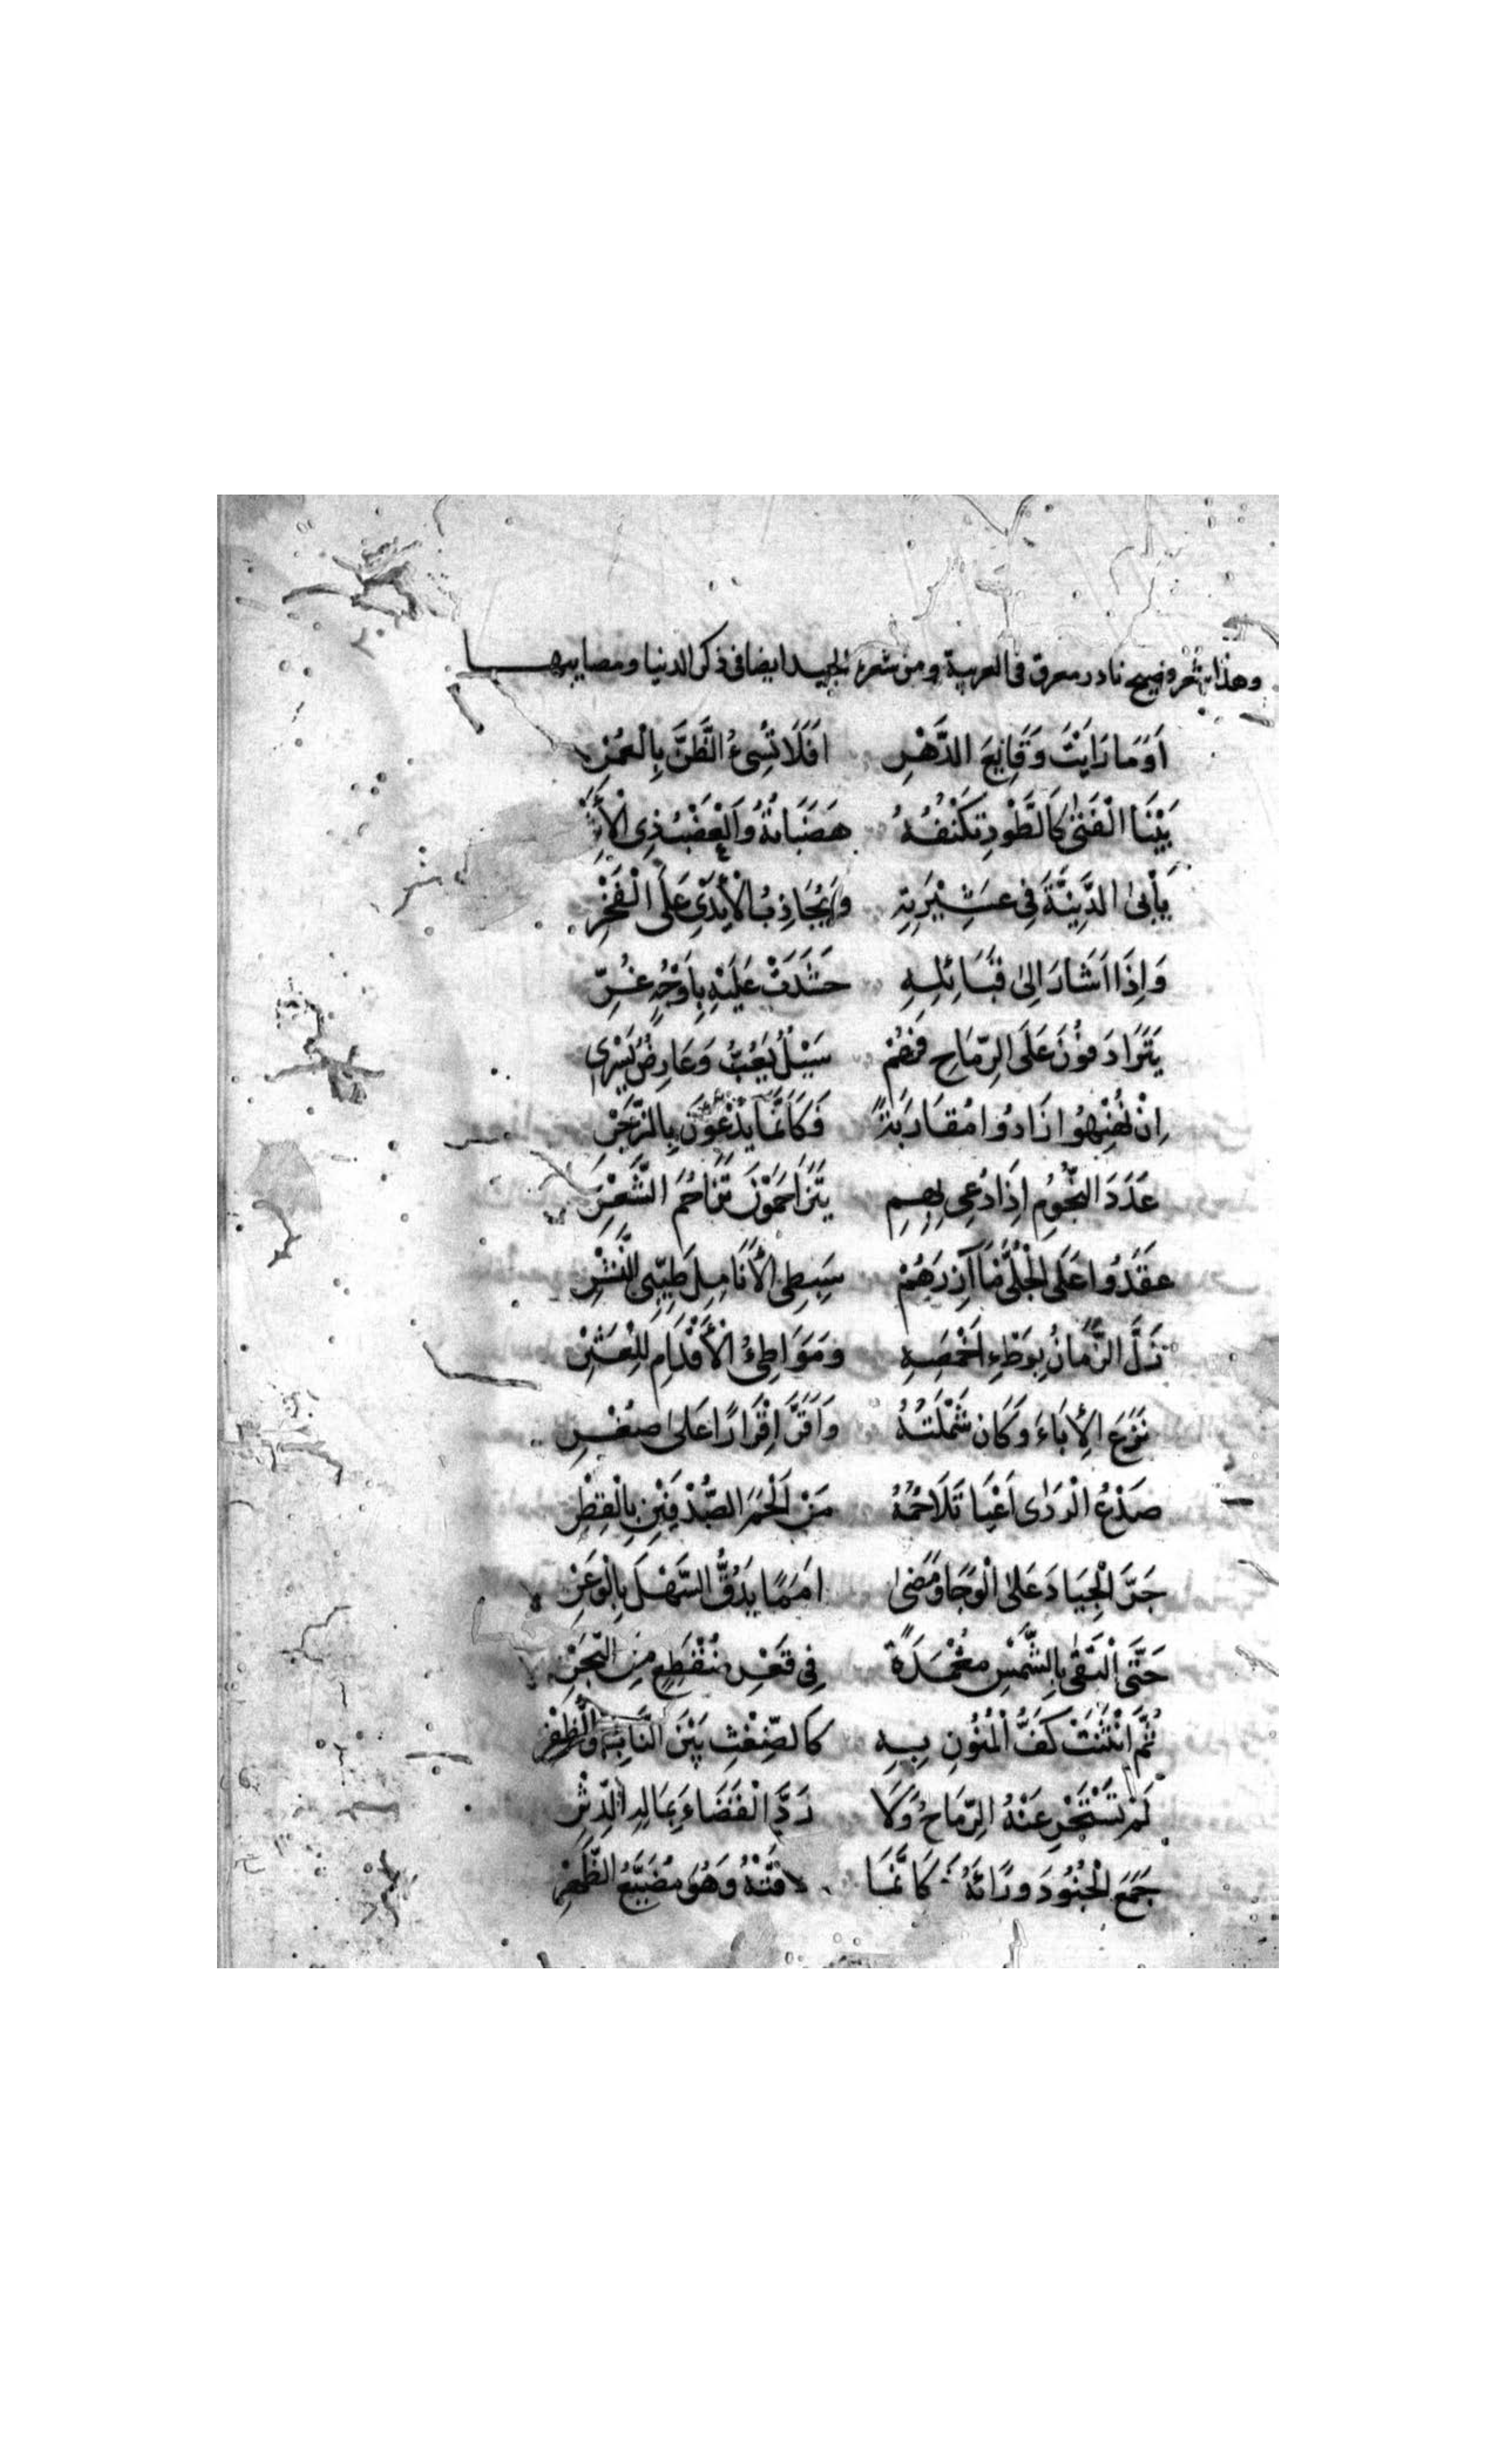 وهذا شعر فصيح نادر معرق في العربية ومن شعره الجيد ايضا في ذكر الدنيا ومصايبها
اَوَمَا رَايَتْ وَقَايِعَ الدَّهْرِ افَلَا تُسِىءُ الظَّنَّ بِالْعُمْرِ
بَيْنَا الْفَتٰى كَالطَّوْدِ تَكْنُفُهُ هَضَبَاتُهُ وَالْعَضْبُ ذِى الْأَثْرِ
يَأْبٰى الدَّنِيَّةَ فِى عَشِيْرَتِهِ وَيُجَاذِبُ الْأَيْدِى عَلَى الْفَخْرِ
وَاِذَا اَشَارَ اِلىٰ قَبَائِلِهِ حَشَدَتْ عَلَيْهِ بِاَوْجُهٍ غُرِّ
يَتَرَادَفُونَ عَلَى الرِّمَاحِ فَهُمْ سَيْلٌ يَعُبُّ وَعَارِضٌ يَسْرِى
اِنْ نُهْنِهُوا زَادُوا مُقَارَبَةً فَكَاَنَّمَا يَدْعُونَ بِالزَّجْرِ
عَدَدَ النُّجُومِ اِذَا دُعِى بِهِمِ يَتَزَاحَمُوْنَ تَزَاحُمَ الشَّعْرِ
عَقَدُوا عَلَى الْجُلّٰى مَآزِرَهُمْ سَبِطِى الْأَنَامِلِ طَيِّبِى النَّشْرِ
زَلَّ الزَّمَانُ بِوَطْءِ اَخْمَصِهِ وَمَوَاطِىءُ الْأَقْدَامِ لِلْعَثْرِ
نَزَعَ الْاِبَاءَ وَكَانَ شَمْلَتُهُ وَاَقَرَّ اِقْرَارًا عَلىٰ صُغْرِ
صَدْعُ الرَّدٰى اَعْيَا تَلَاحُمُهُ مَنْ اَلْحَمَ الصُّدْفَيْنِ بِالْقِطْرِ
جَرَّ الْجِيَادَ عَلىٰ الْوَجَا وَمَضٰى اَمَمًا يَدُقُّ السَّهْلَ بِالْوَعْرِ
حَتَّى الْتَقٰى بِالشَّمْسِ مُغْمَدَةً فِى قَعْرِ مُنْقَطِعٍ مِنَ الْبَحْرِ
ثُمَّ انْثَنَتْ كَفُّ الْمَنُونِ بِهِ كَالضِّغْثِ بَيْنَ النَّابِ وَالظُّفْرِ
لَمْ تَشْتَجِرْ عَنْهُ الرِّمَاحُ وَلَا رَدَّ الْقَضَاءَ بِمَالِهِ الدِّثْرِ
جَمَعَ الْجُنُودَ وَرَاءَهُ كَاَنَّمَا لَاقَتْهُ وَهُوَ مُضَيَّعُ الظَّهْرِ